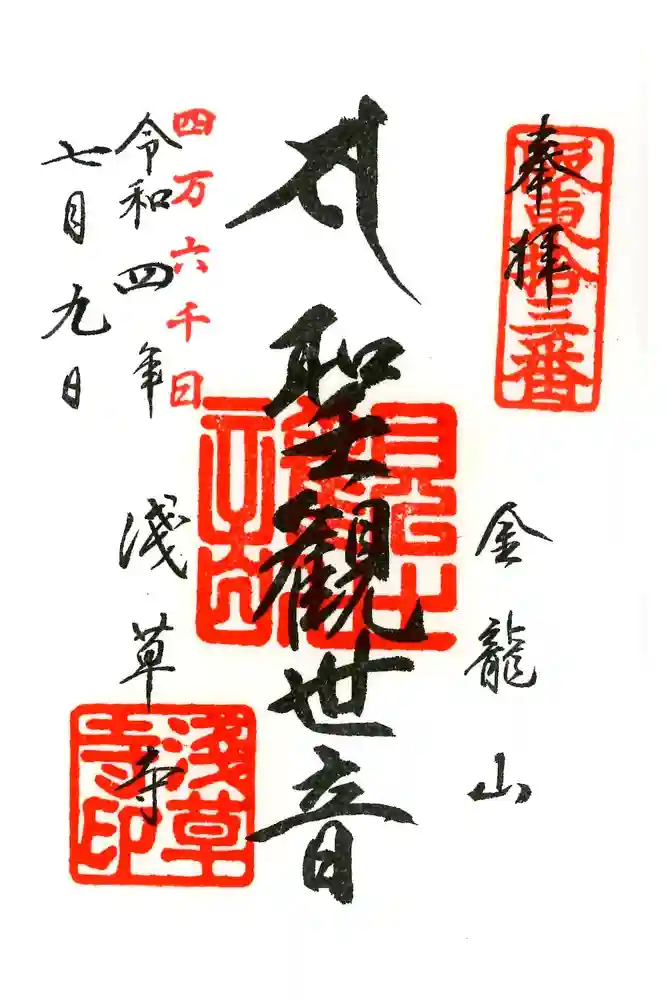 奉拝
坂東拾三番
金龍山
サ
聖観世音
四万六千日
令和四年
七月九日
浅草寺
浅草寺印